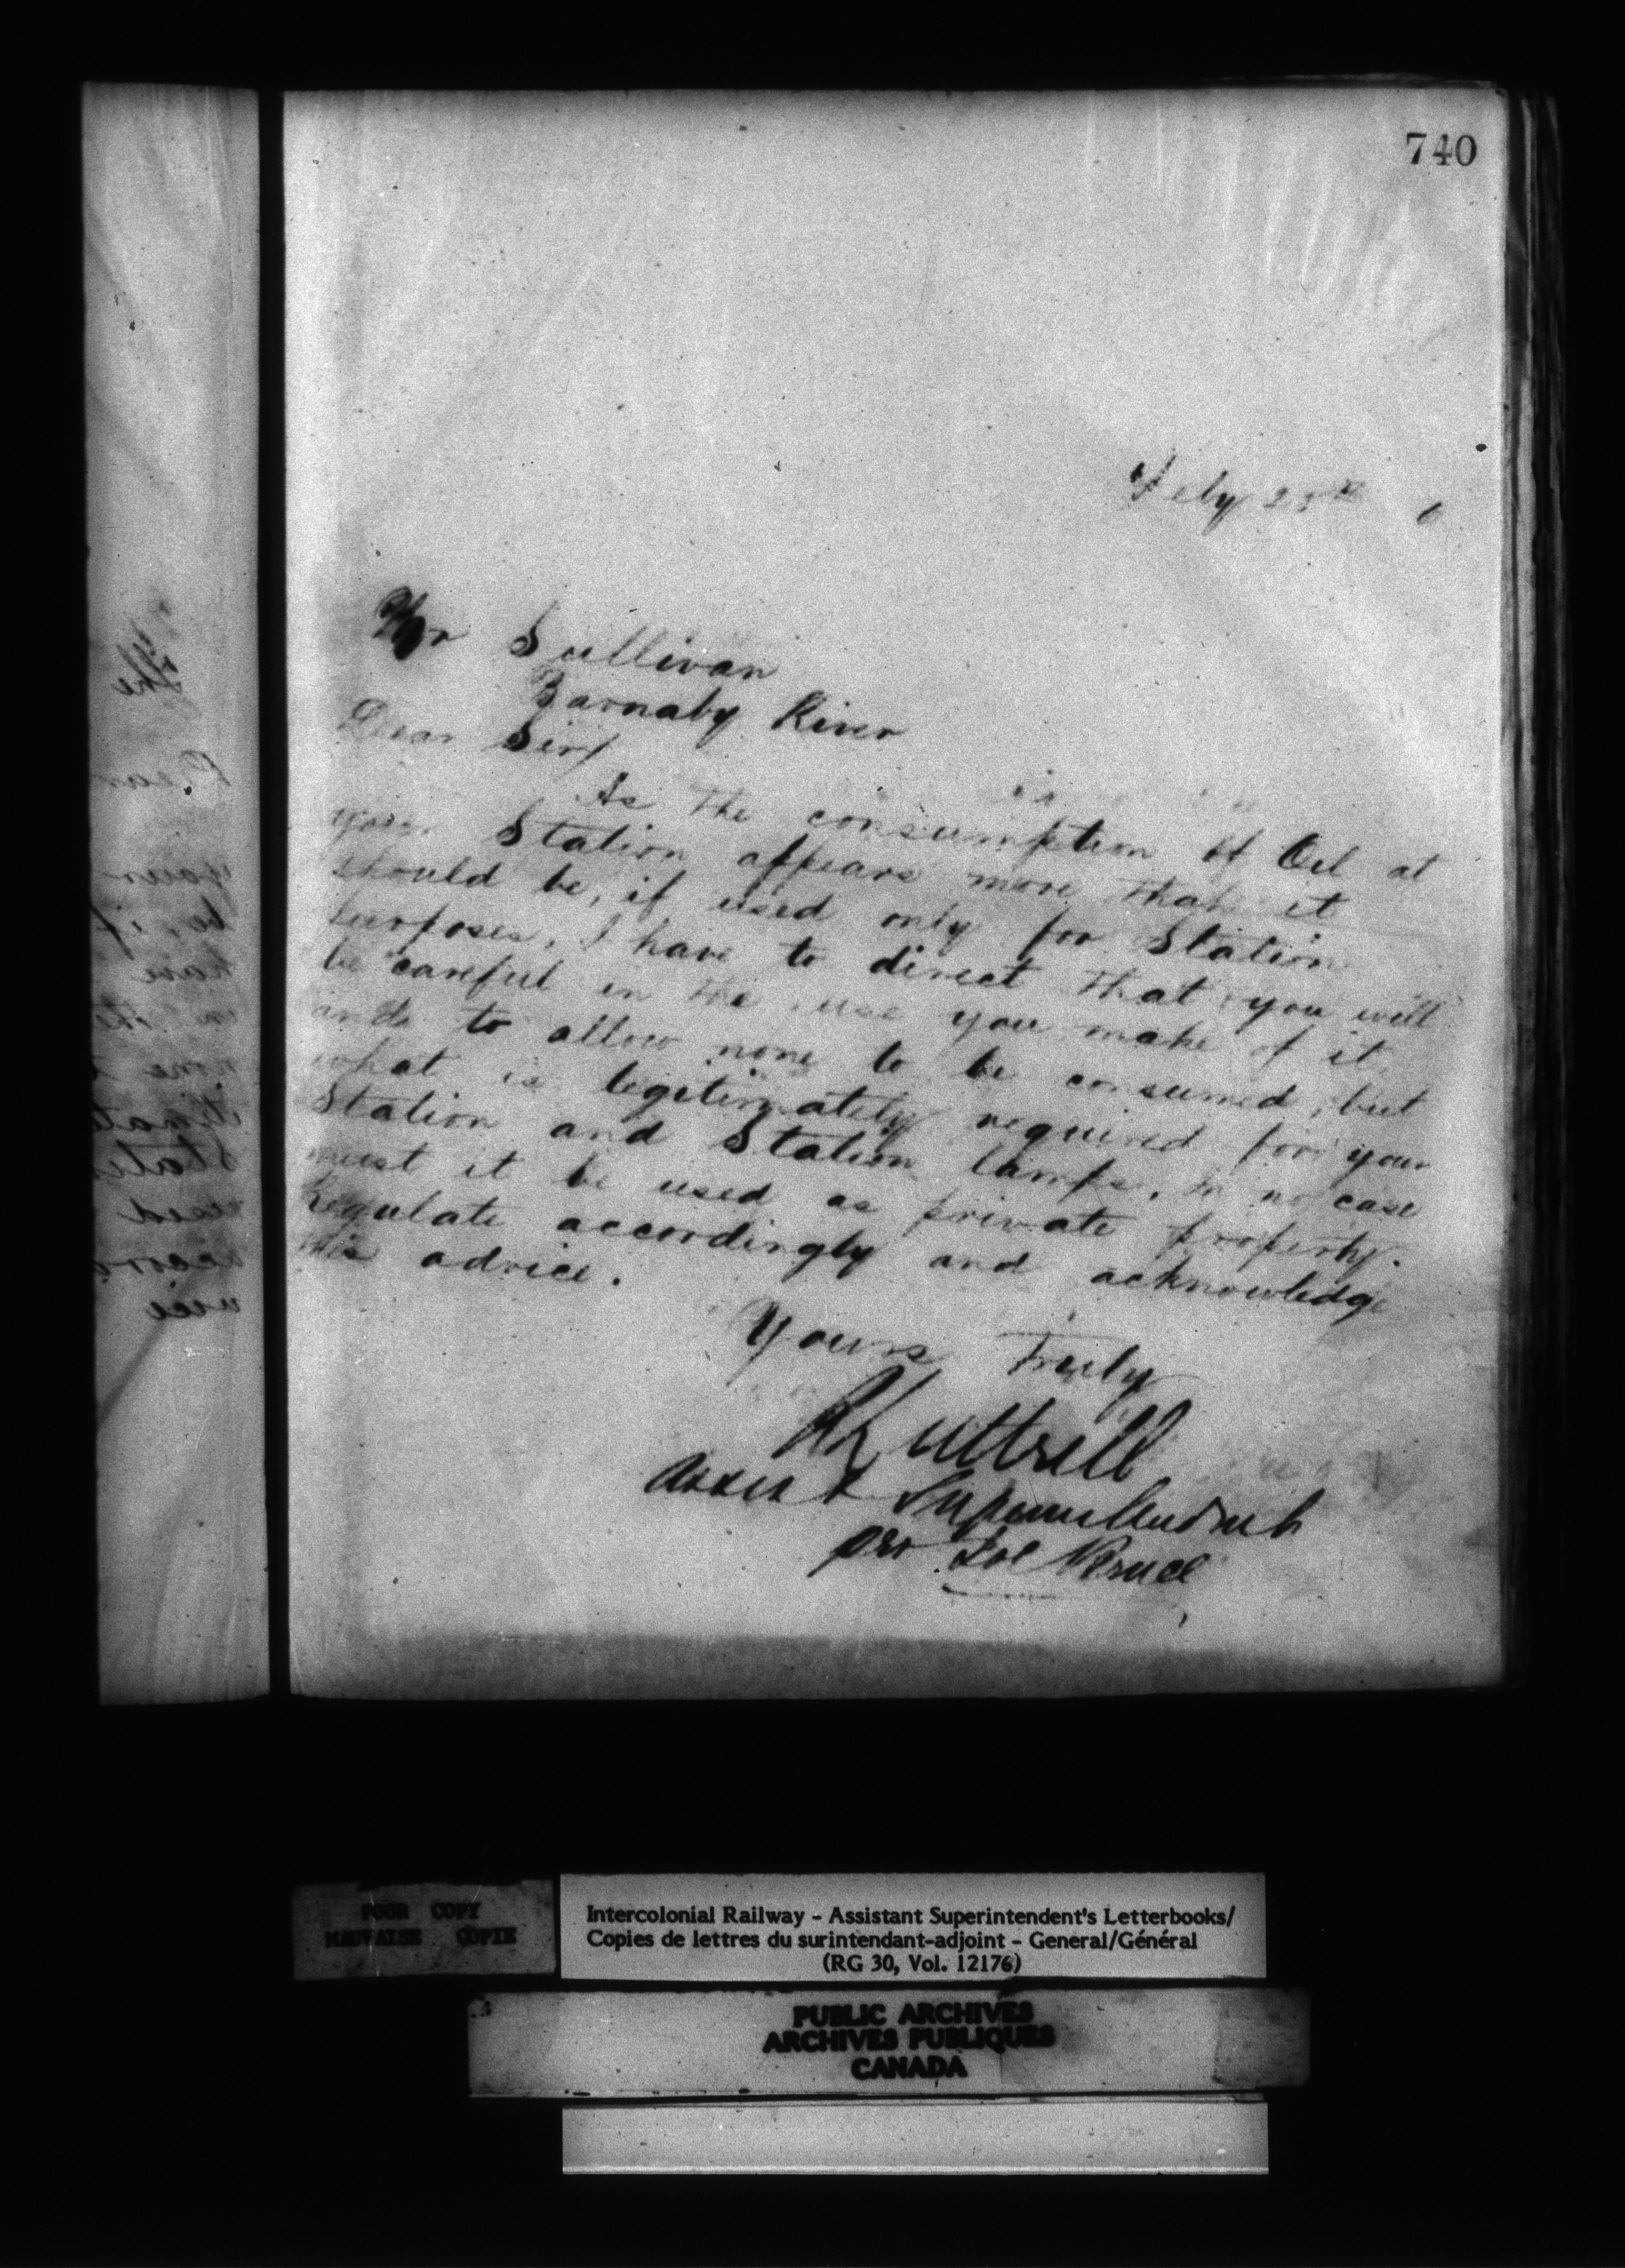 740
Feby 25th 6
Mr Sullivan
Barnaby River
Dear Sir/
As the consumption of Oil at
your Station appears more than it
should be, if used only for Station
purposes, I have to direct that you will
be careful in the use you make of it
and to allow none to be consumed, but
what is legitimately required for your
Station and Station lamps, in no case
must it be used as private property.
Regulate accordingly and acknowledge
this advice.
Yours Truly
A Luttrell
Assist Superintendent
per
The
Dear
your
be, if
have
in the
none
Station
used
POOR COPY
MAUVAISE COPIE
Intercolonial Railway - Assistant Superintendent's Letterbooks/
Copies de lettres du surintendant-adjoint - General/Général
(RG 30, Vol. 12176)
PUBLIC ARCHIVES
ARCHIVES PUBLIQUES
CANADA